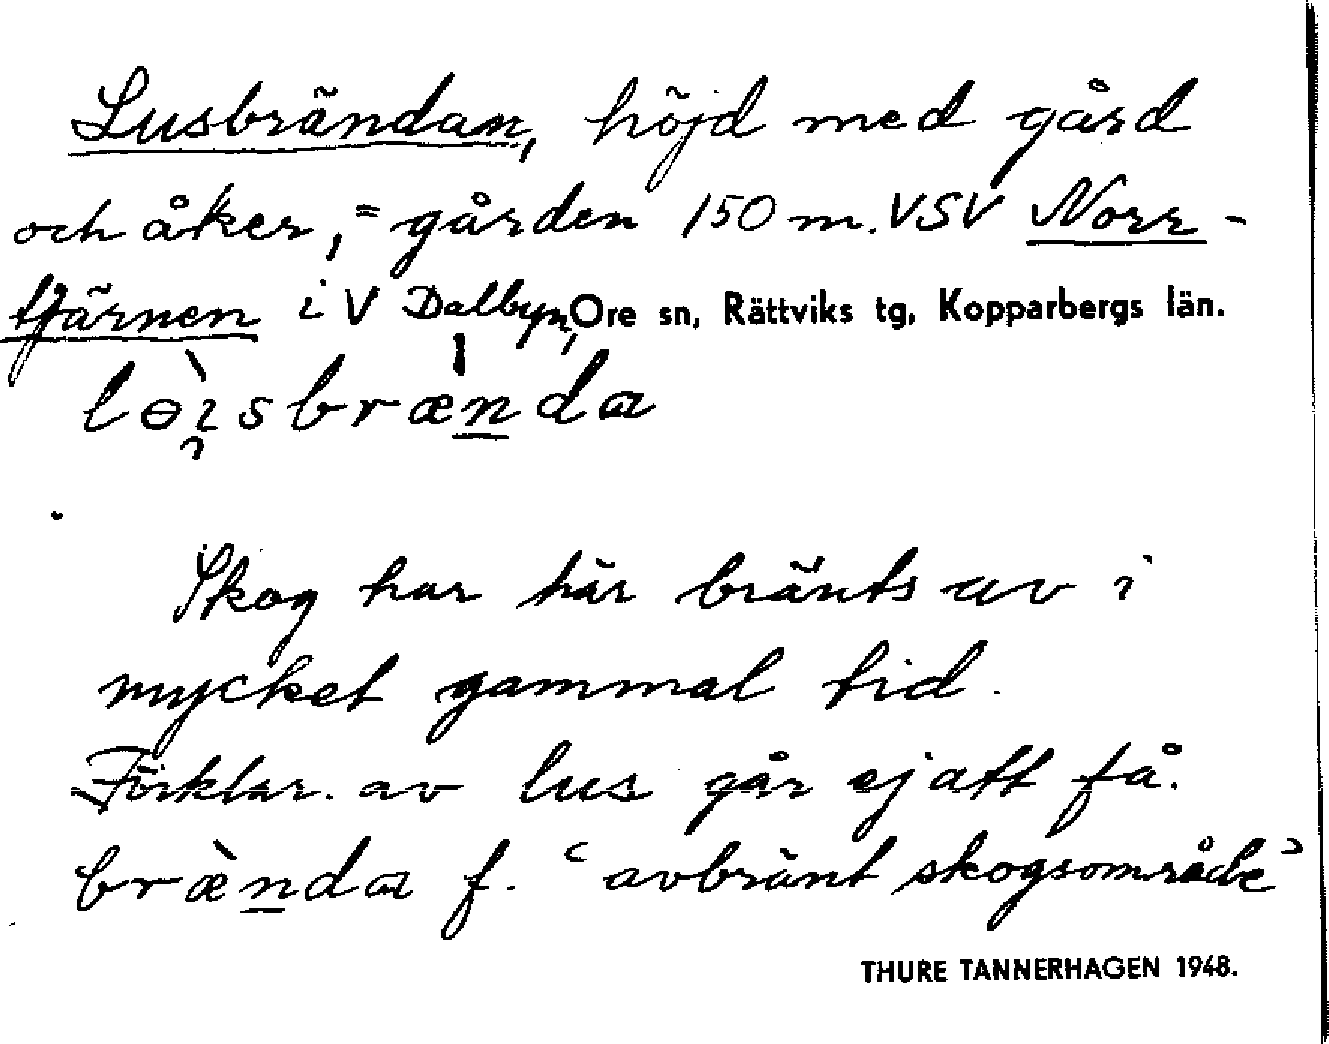 Lusbrändan, höjd med gård
och åker, = gården 150 m. VSV Norr-
tjärnen i V Dalbyn, Ore sn, Rättviks tg, Kopparbergs län.
Skog har här bränts av i
mycket gammal tid.
Förklar. av lus går ej att få.
brænda f. ‘avbränt skogsområde’
THURE TANNERHAGEN 1948.